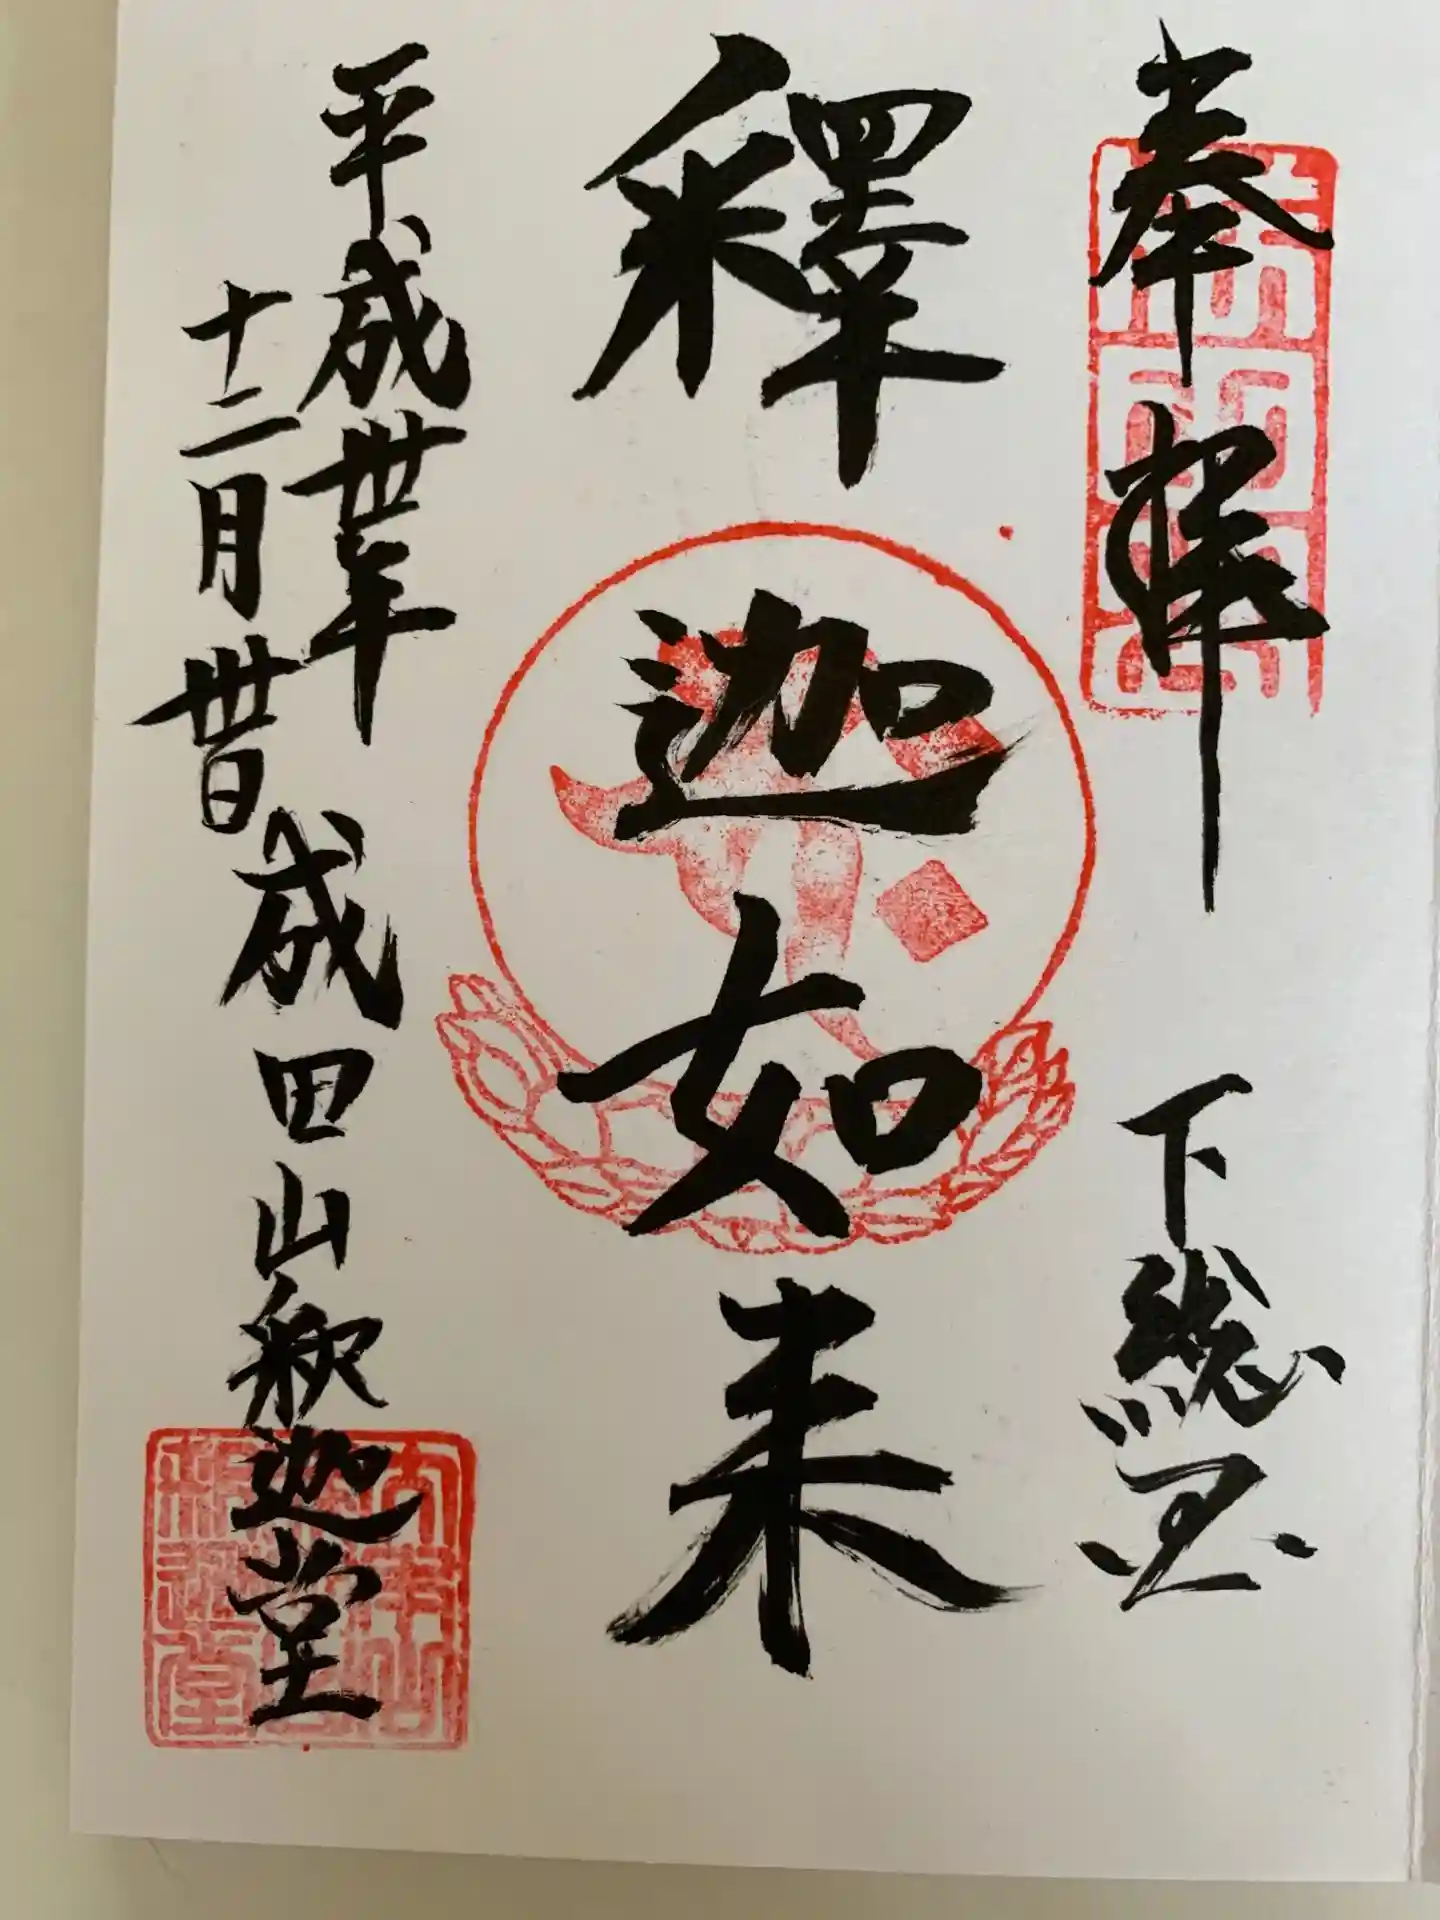 奉拝
下総国
釋迦如来
平成卅年
十二月卅日
成田山釈迦堂